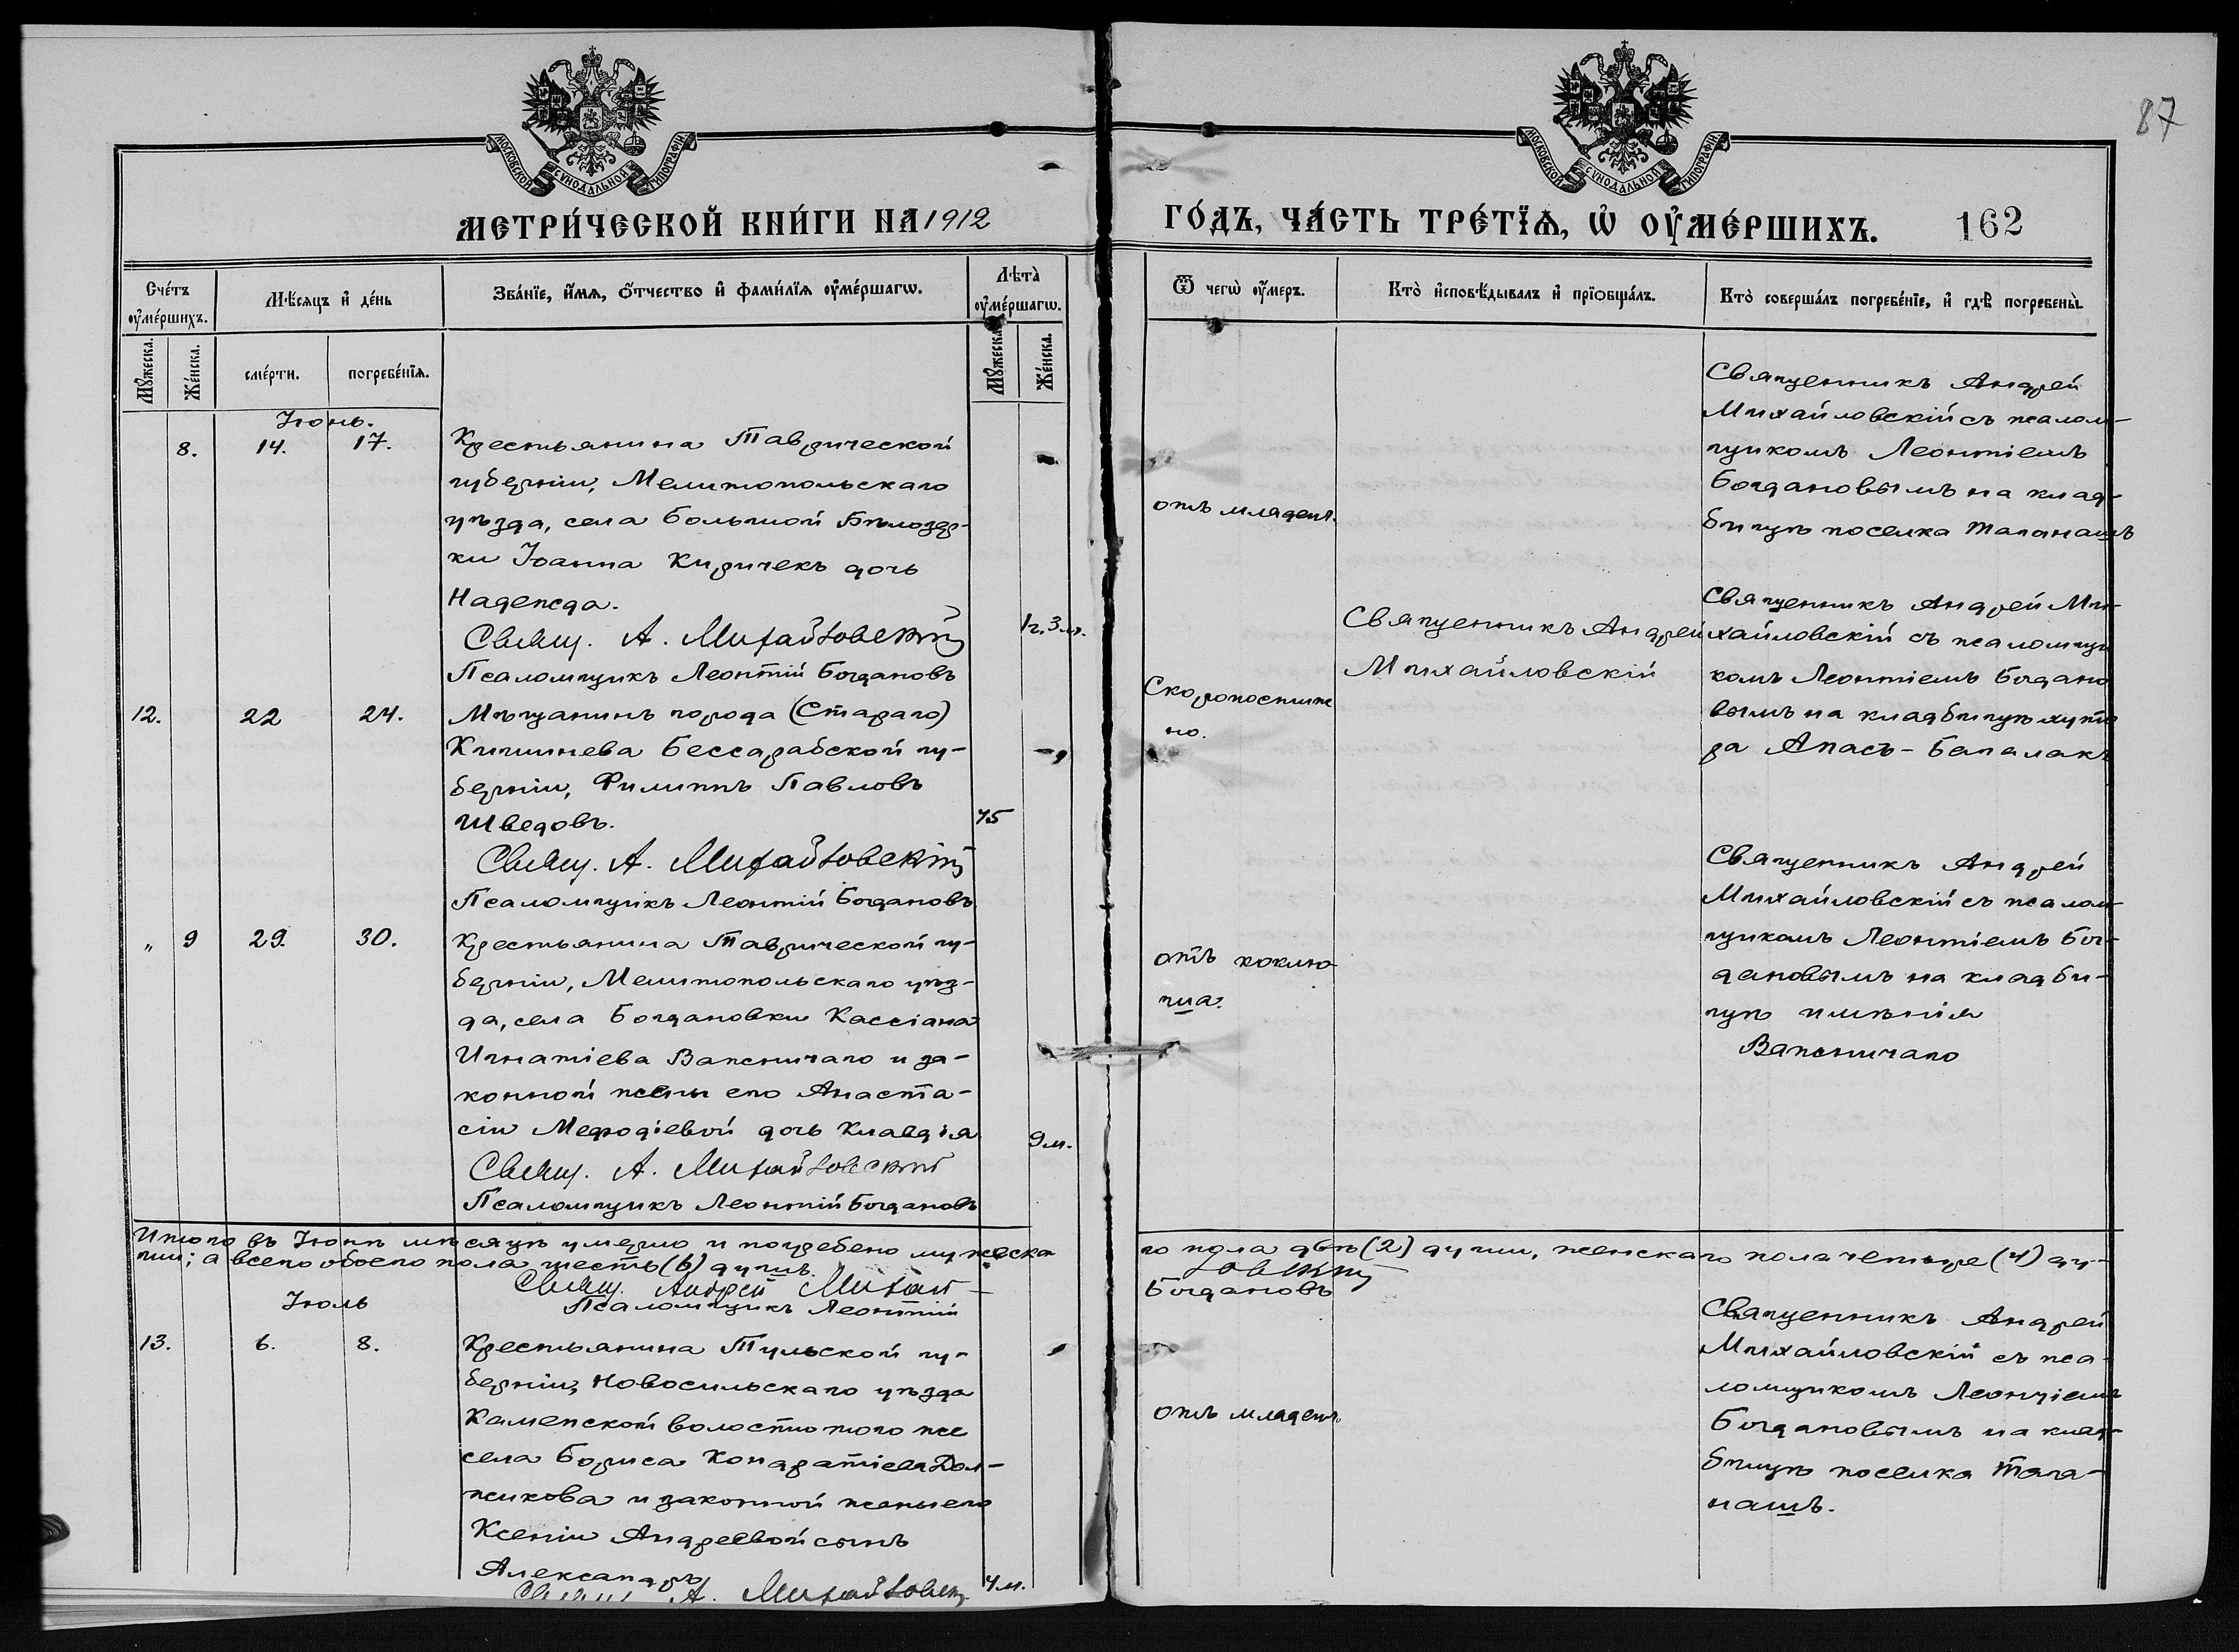 87
МОСКОВСКОЙ СѴНОДАЛЬНОЙ ТИПОГРАФІИ
МОСКОВСКОЙ СѴНОДАЛЬНОЙ ТИПОГРАФІИ
МЕТРИ́ЧЕСКОЙ КНИ́ГИ НА 1912
ГО́ДЪ, ЧА́СТЬ ТРЕ́ТЇѦ, Ѡ҆ ОУ҆МЕ́РШИХЪ. 162
Сче́тъ оу҆ме́ршихъ.
Мѣ́сяцъ и҆ де́нь
Зва́нїе, и҆́мѧ, ѻ҆́тчество и҆ фами́лїѧ оу҆ме́ршагѡ.
Лѣта̀ оу҆ме́ршагѡ.
Мꙋ́жеска.
Же́нска.
сме́рти.
погребе́нїѧ.
Мꙋ́жеска.
Же́нска.
Ѿ чегѡ̀ оу҆́меръ.
Кто̀ и҆сповѣ́дывалъ и҆ прїѻбща́лъ.
Кто̀ соверша́лъ погребе́нїе, и҆ гдѣ̀ погребены̀.
Іюнь.
8. 14. 17.
Крестьянина Таврической
губерніи, Мелитопольскаго
уѣзда, села Большой Бѣлозер-
ки Іоанна Киричекъ дочь
Надежда.
Свящ. А. Михайловскій
Псаломщикъ Леонтій Богдановъ
1г. 3м.
отъ младенч.
Священникъ Андрей
Михайловскій съ псалом-
щикомъ Леонтіемъ
Богдановымъ на клад-
бищѣ поселка Таганашъ
12. 22 24.
Мѣщанинъ города (Стараго)
Кишинева Бессарабской гу-
берніи, Филиппъ Павловъ
Шведовъ.
Свящ. А. Михайловскій
Псаломщикъ Леонтій Богдановъ
75
Скоропостиж
но.
Священникъ Андрей
Михайловскій
Священникъ Андрей Ми-
хайловскій съ псаломщи
комъ Леонтіемъ Богдано
вымъ на кладбищѣ хуто
ра
„ 9 29. 30.
Крестьянина Таврической гу-
берніи, Мелитопольскаго уѣз-
да, села Богдановки Кассіана
Игнатіева Важничаго и за-
конной жены его Анаста-
сіи Мефодіевой дочь Клавдія
Свящ. А. Михайловскій
Псаломщикъ Леонтій Богдановъ
9м.
отъ коклю
ша.
Священникъ Андрей
Михайловскій съ псалом-
щикомъ Леонтіемъ Бог-
дановымъ на кладби-
щѣ имѣнія
Важничаго
Итого въ Іюнѣ мѣсяцѣ умерло и погребено мужеска
го пола двѣ (2) души, женскаго пола четыре (4) ду-
ши; а всего обоего пола шесть (6) душъ.
Свящ. Андрей Михай-
ловскій
Псаломщикъ Леонтій
Богдановъ
Іюль
13. 6. 8.
Крестьянина Тульской гу-
берніи, Новосильскаго уѣзда
Каменской волости того же
села Бориса Кондратіева Дол-
жикова и законной жены его
Ксеніи Андреевой сынъ
Александръ
Свящ. А. Михайловскій
4м.
отъ младенч.
Священникъ Андрей
Михайловскій съ пса-
ломщикомъ Леонтіемъ
Богдановымъ на клад-
бищѣ поселка Тага-
нашъ.